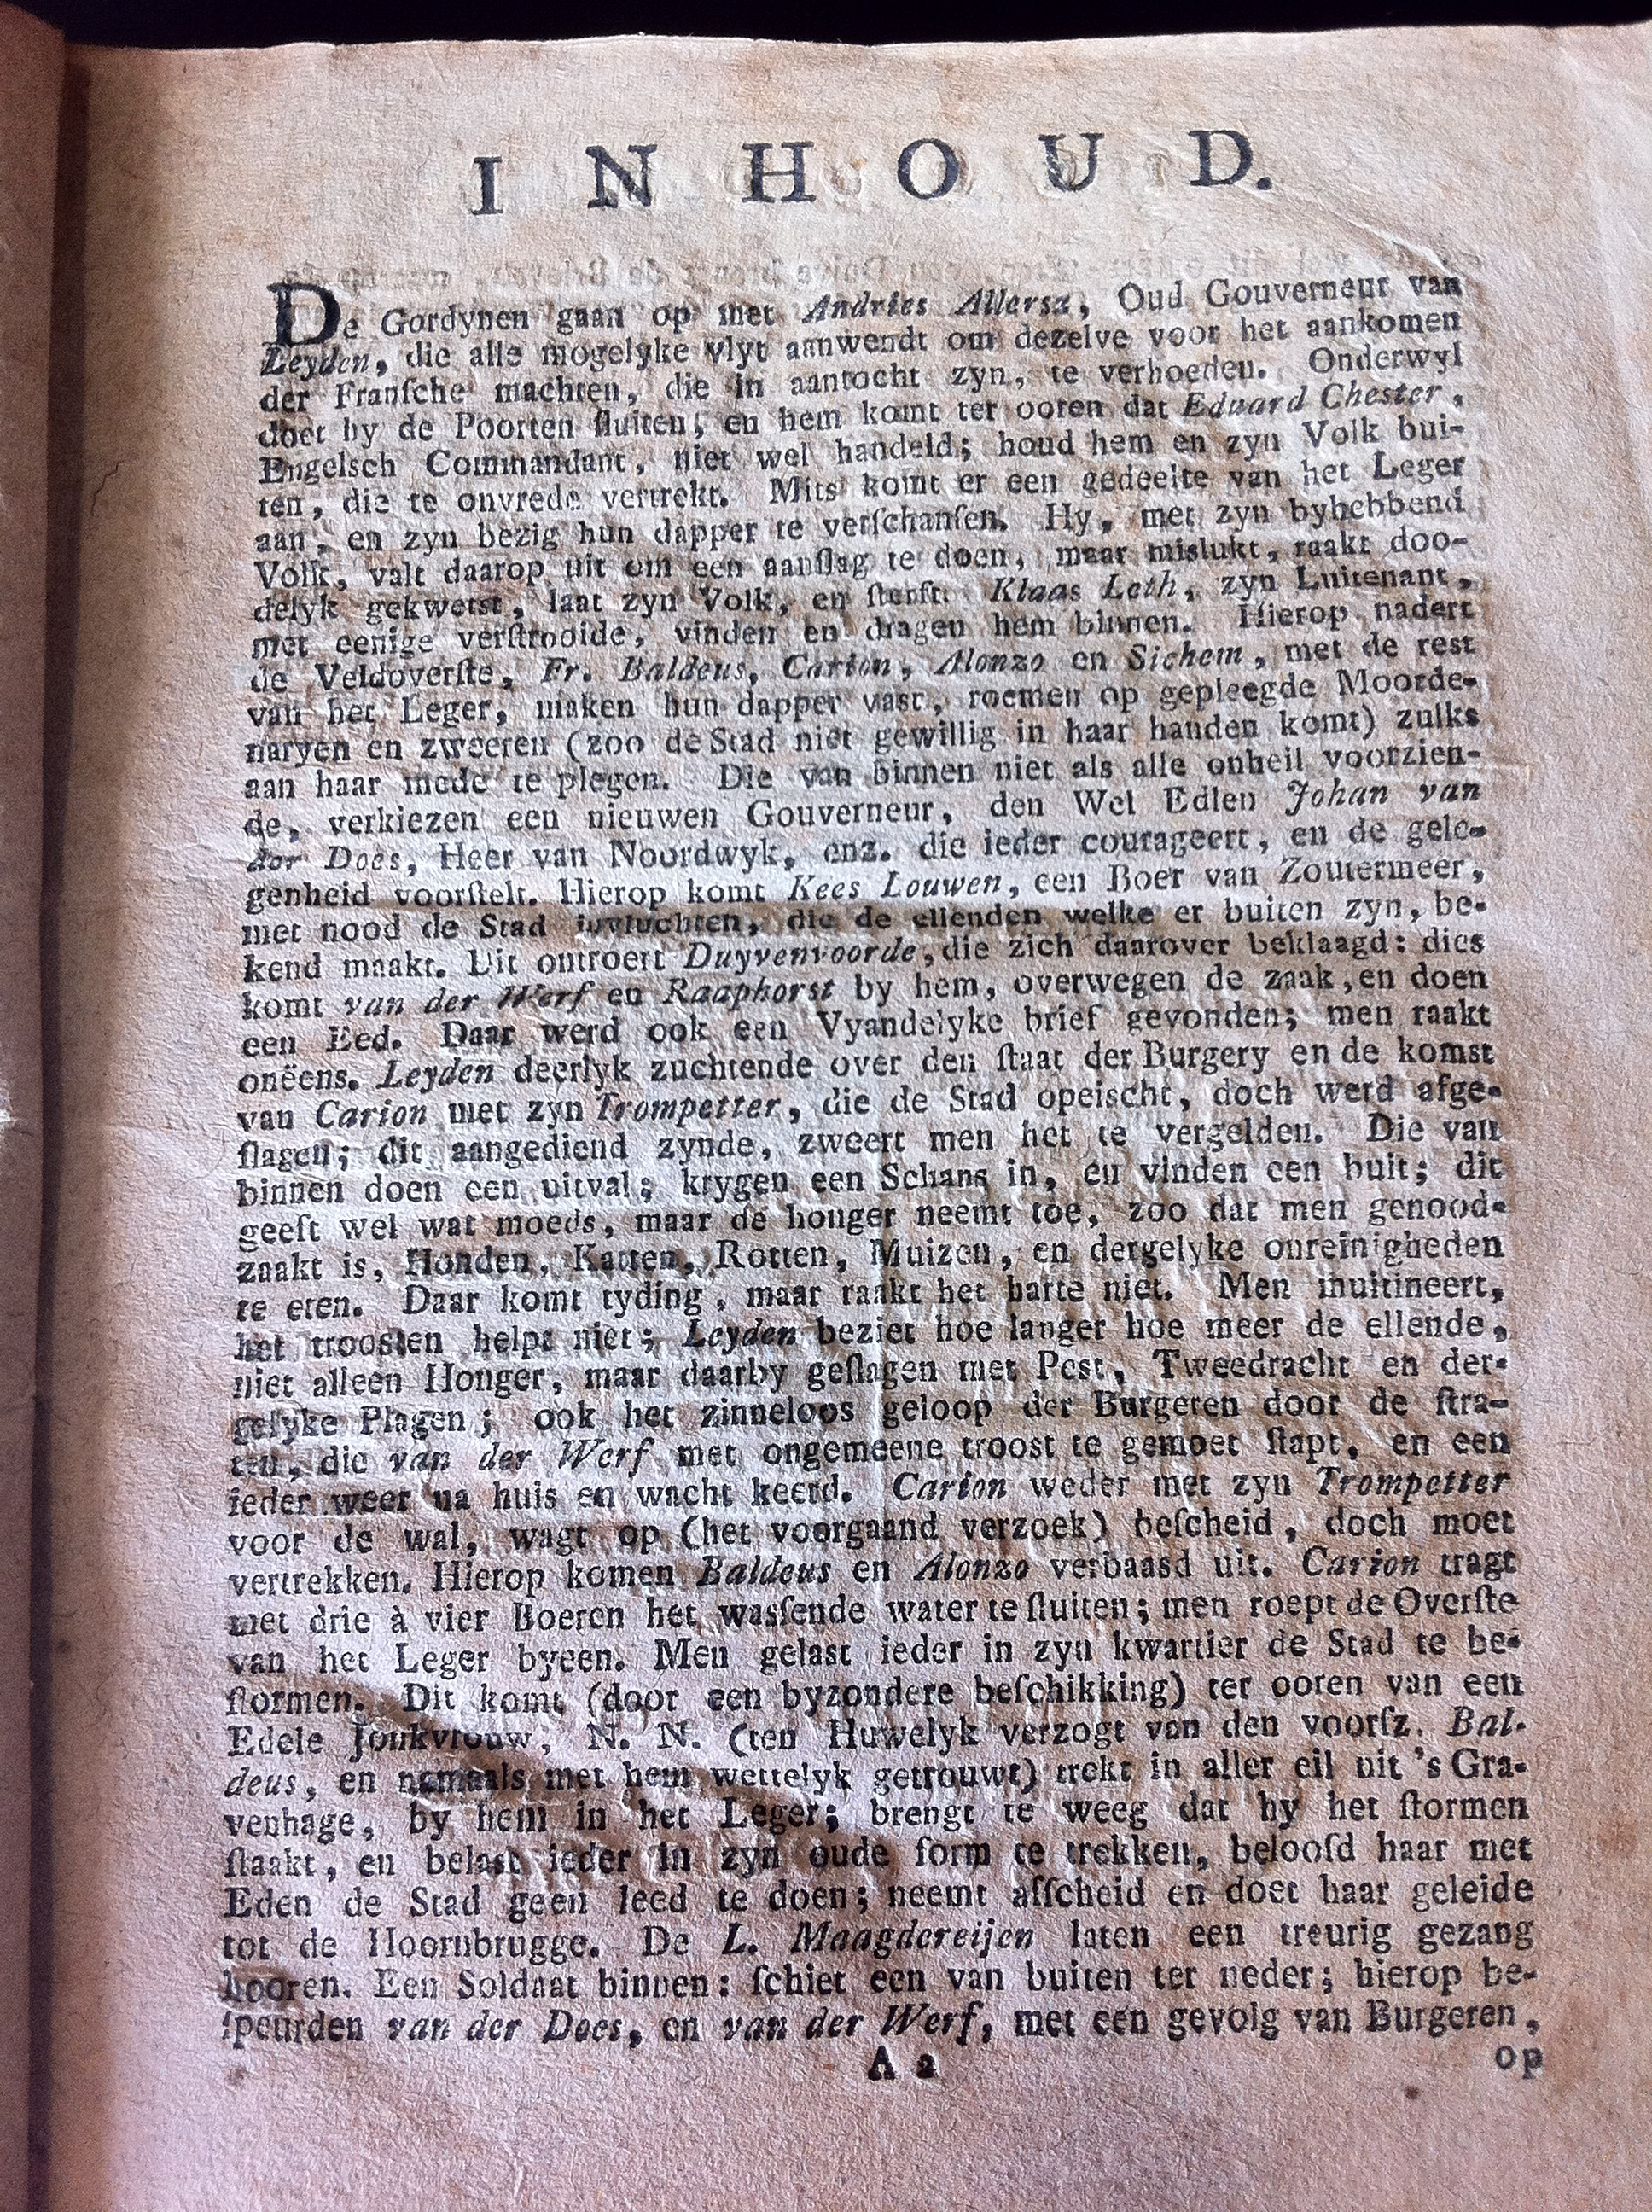 INHOUD.
De Gordynen gaan op met Andries Allersz, Oud Gouverneur van
Leyden, die alle mogelyke vlyt aanwendt om dezelve voor het aankomen
der Franſche machten, die in aantocht zyn, te verhoeden. Onderwyl
doet hy de Poorten ſluiten, en hem komt ter ooren dat Eduard Chester,
Engelsch Commandant, niet wel handeld; houd hem en zyn Volk bui-
ten, die te onvrede vertrekt. Mits komt er een gedeelte van het Leger
aan, en zyn bezig hun dapper te verſchanſen. Hy, met zyn byhebbend
Volk, valt daarop uit om een aanſlag te doen, maar mislukt, raakt doo-
delyk gekwetst, laat zyn Volk, en ſterft. Klaas Leth, zyn Luitenant,
met eenige verſtrooide, vinden en dragen hem binnen. Hierop nadert
de Veldoverſte, Fr. Baldeus, Carion, Alonzo en Sichem, met de rest
van het Leger, maken hun dapper vast, roemen op gepleegde Moorde-
naryen en zweeren (zoo de Stad niet gewillig in haar handen komt) zulks
aan haar mede te plegen. Die van binnen niet als alle onheil voorzien-
de, verkiezen een nieuwen Gouverneur, den Wel Edlen Johan van
der Does, Heer van Noordwyk, enz. die ieder courageert, en de gele-
genheid voorſtelt. Hierop komt Kees Louwen, een Boer van Zoutermeer,
met nood de Stad invluchten, die de ellenden welke er buiten zyn, be-
kend maakt. Dit ontroert Duyvenvoorde, die zich daarover beklaagd: dies
komt van der Werf en Raaphorst by hem, overwegen de zaak, en doen
een Eed. Daar werd ook een Vyandelyke brief gevonden; men raakt
onëens. Leyden deerlyk zuchtende over den ſtaat der Burgery en de komst
van Carion met zyn Trompetter, die de Stad opeischt, doch werd afge-
ſlagen; dit aangediend zynde, zweert men het te vergelden. Die van
binnen doen een uitval; krygen een Schans in, en vinden een buit; dit
geeft wel wat moeds, maar de honger neemt toe, zoo dat men genood-
zaakt is, Honden, Katten, Rotten, Muizen, en dergelyke onreinigheden
te eten. Daar komt tyding, maar raakt het harte niet. Men muitineert,
het troosten helpt niet; Leyden beziet hoe langer hoe meer de ellende,
niet alleen Honger, maar daarby geſlagen met Pest, Tweedracht en der-
gelyke Plagen; ook het zinneloos geloop der Burgeren door de ſtra-
ten, die van der Werf met ongemeene troost te gemoet ſtapt, en een
ieder weer na huis en wacht keerd. Carion weder met zyn Trompetter
voor de wal, wagt op (het voorgaand verzoek) beſcheid, doch moet
vertrekken. Hierop komen Baldeus en Alonzo verbaasd uit. Carion tragt
met drie à vier Boeren het wasſende water te ſluiten; men roept de Overſte
van het Leger byeen. Men gelast ieder in zyn kwartier de Stad te be-
ſtormen. Dit komt (door een byzondere beſchikking) ter ooren van een
Edele Jonkvrouw, N. N. (ten Huwelyk verzogt van den voorſz. Bal-
deus, en namaals met hem wettelyk getrouwt) trekt in aller eil uit 's Gra-
venhage, by hem in het Leger; brengt te weeg dat hy het ſtormen
ſtaakt, en belast ieder in zyn oude form te trekken, beloofd haar met
Eden de Stad geen leed te doen; neemt afſcheid en doet haar geleide
tot de Hoornbrugge. De L. Maagdereijen laten een treurig gezang
hooren. Een Soldaat binnen: ſchiet een van buiten ter neder; hierop be-
ſpeurden van der Does, en van der Werf, met een gevolg van Burgeren,
A 2
op